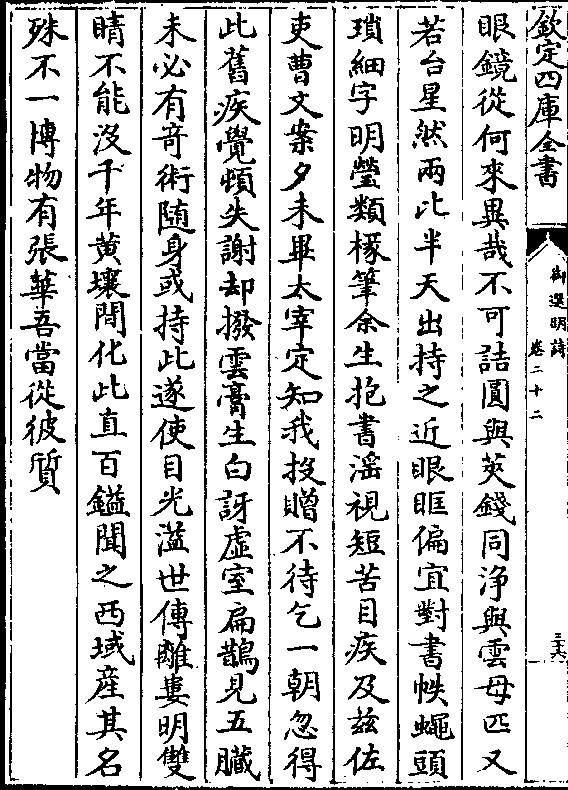 欽定四庫全書
御選明詩
卷二十二
三六
眼鏡從何來異哉不可詰圓與莢錢同浄與雲母匹又
若台星然兩比半天出持之近眼眶偏宜對書帙蠅頭
瑣細字明瑩類椽筆余生抱書滛視短苦目疾及兹佐
吏曹文案夕未畢太宰定知我投贈不待乞一朝忽得
此舊疾覺頓失謝却撥雲膏生白訝虚室扁鵲見五臓
未必有竒術随身或持此遂使目光溢世傳離婁明雙
睛不能沒千年黄壤間化此直百鎰聞之西域産其名
殊不一博物有張華吾當從彼質